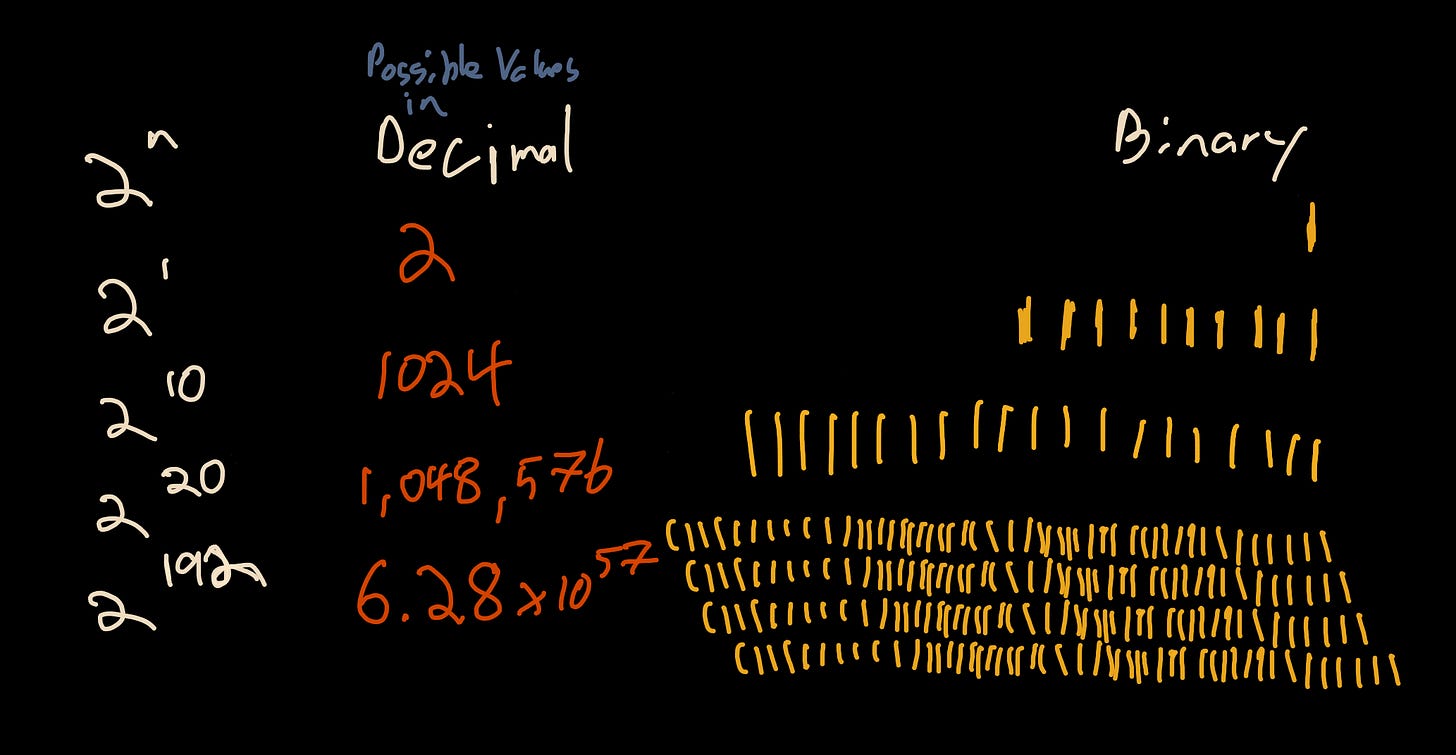 Possible Values
in
2^n Decimal Binary
2^1 2 |
2^10 1024 ||||||||||
2^20 1,048,576 ||||||||||||||||||||
2^192 6.28 x 10^57